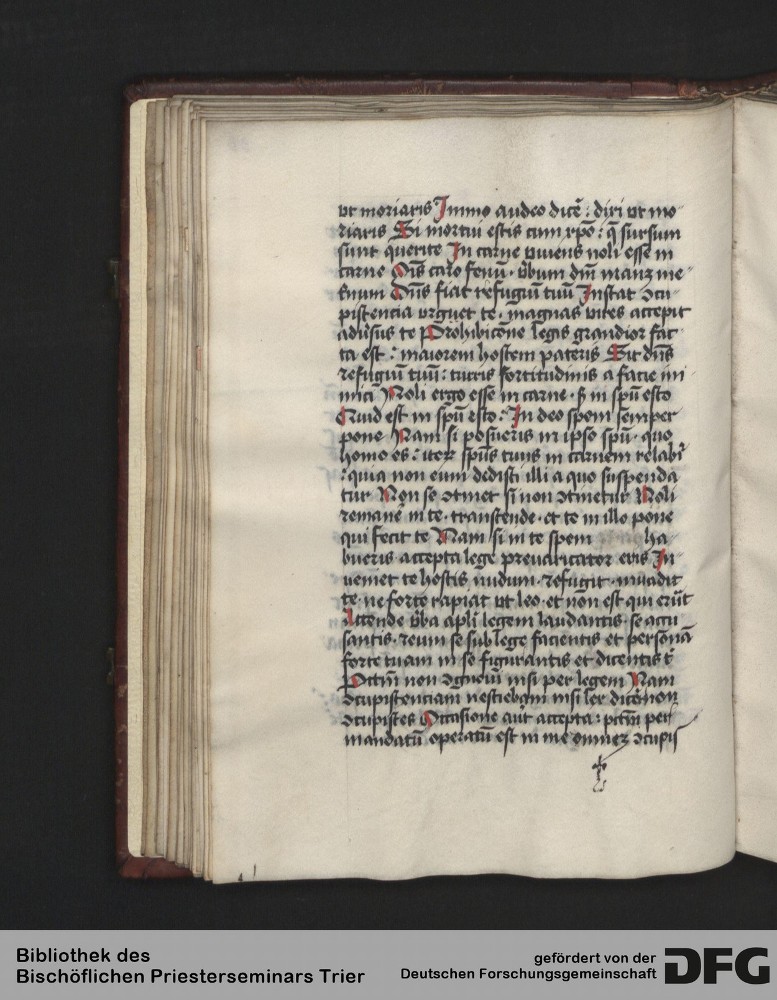 vt moriaris Immo audeo dicē : dixi vt mo
riaris Si mortui estis cum xp̄o : q̄ sursum
sunt querite In carne viuens noli esse in
carne Oīs caro fenū · v̄bum dn̄i manꝫ ine
t̄num Dn̄s fiat refugiū tuū Instat ↄcu
piscencia vrguet te · magnas vires accepit
adūsus te Prohibicōne legis grandior fac
ta est : maiorem hostem pateris Sit dn̄s
refugiū tuū : turris fortitudinis a facie ini
mici Noli ergo esse in carne · sꝫ in spū esto
Quid est in spū esto : In deo spem semper
pone Nam si posueris in ipso spū · quo
homo es : iterꝫ spūs tuus in carnem relabit᷑
: quia non eum dedisti illi a quo suspenda
tur Non se ↄtinet si non ↄtinetur Noli
remanē in te · transcende · et te in illo pone
qui fecit te Nam si in te spem ha
bueris accepta lege preuaricator eris In
ueniet te hostis nudum · refugit · inuadit
te · ne forte rapiat vt leo · et non est qui erūt
Attende v̄ba apl̄i legem laudantis · se accu
santis · reum se sub lege facientis et personā
forte tuam in se figurantis et dicentis t᷑
Pctm̄ non ↄgnoui nisi per legem Nam
ↄcupiscenciam nesciebam nisi lex dicēt non
ↄcupisces Occasione aūt accepta : pctm̄ per
mandatū operatū est in me omnez ↄcupis
Bibliothek des
Bischöflichen Priesterseminars Trier
gefördert von der
Deutschen Forschungsgemeinschaft
DFG